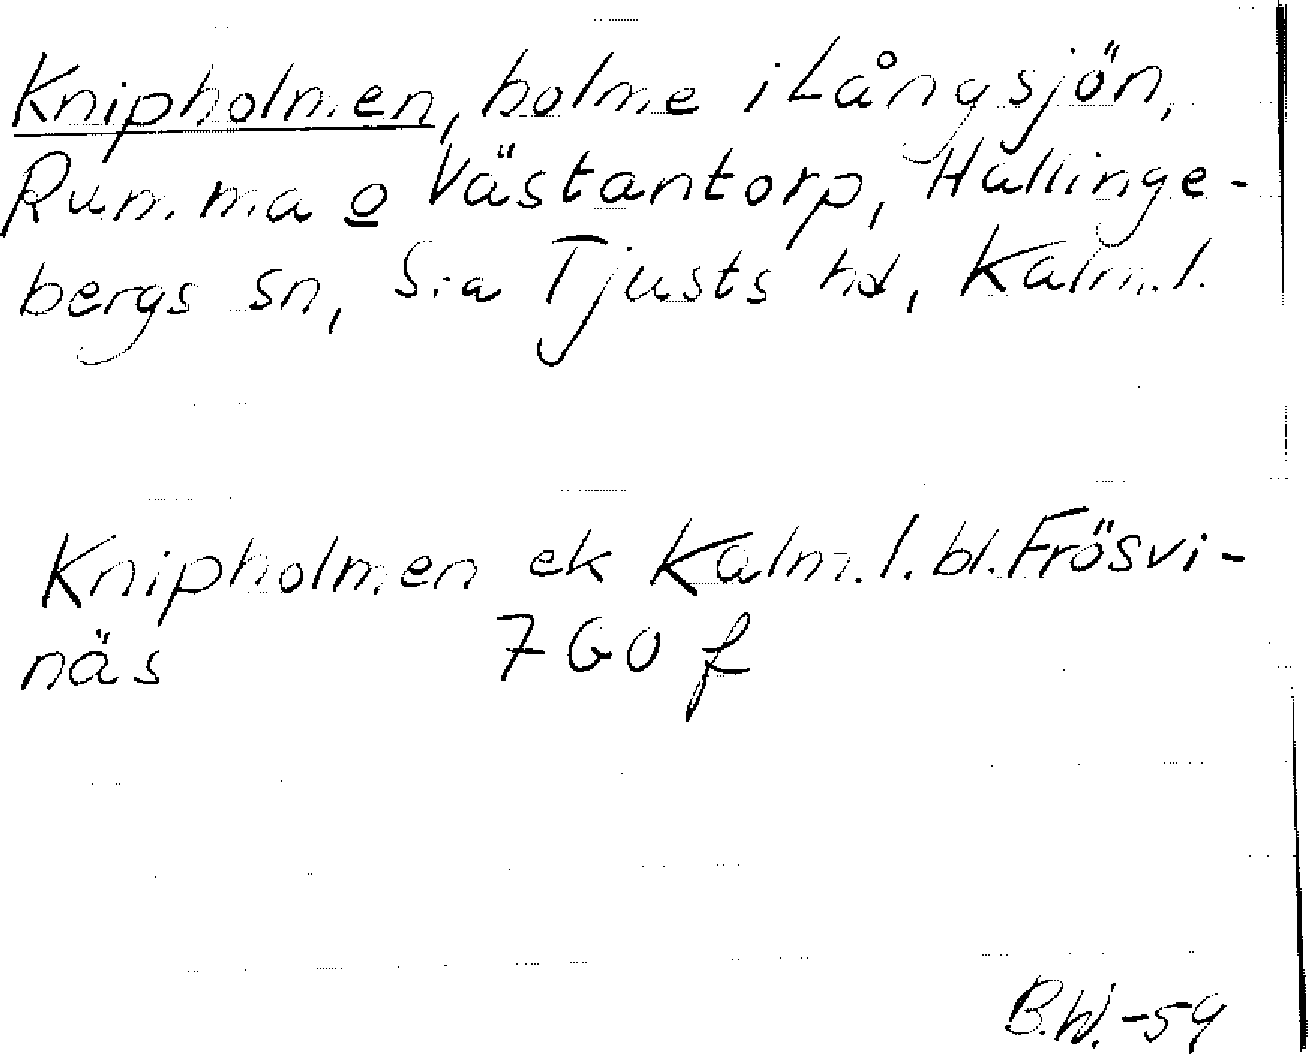 Knipholmen, holme i Långsjön,
Rumma o Västantorp, Hallinge-
bergs sn, S:a Tjusts hd, Kalm. l.
Knipholmen ek Kalm. l. bl. Frösvi-
näs 7 GO f
B.W. -59